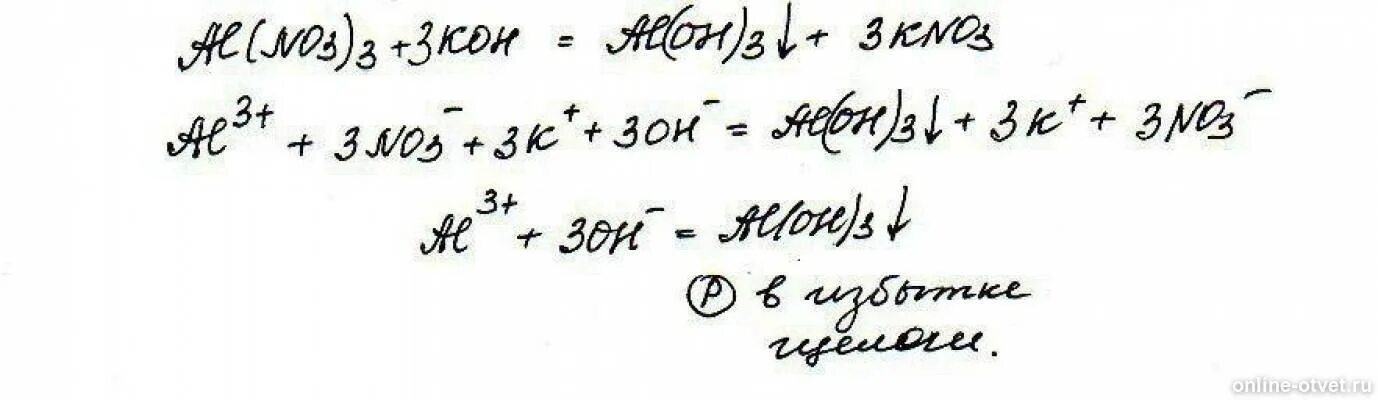 Al(NO3)3 + 3KOH = Al(OH)3↓ + 3KNO3
Al3+ + 3NO3- + 3K+ + 3OH- = Al(OH)3↓ + 3K+ + 3NO3-
Al3+ + 3OH- = Al(OH)3↓
Ⓟ в избытке
щелочи.
online-otvet.ru